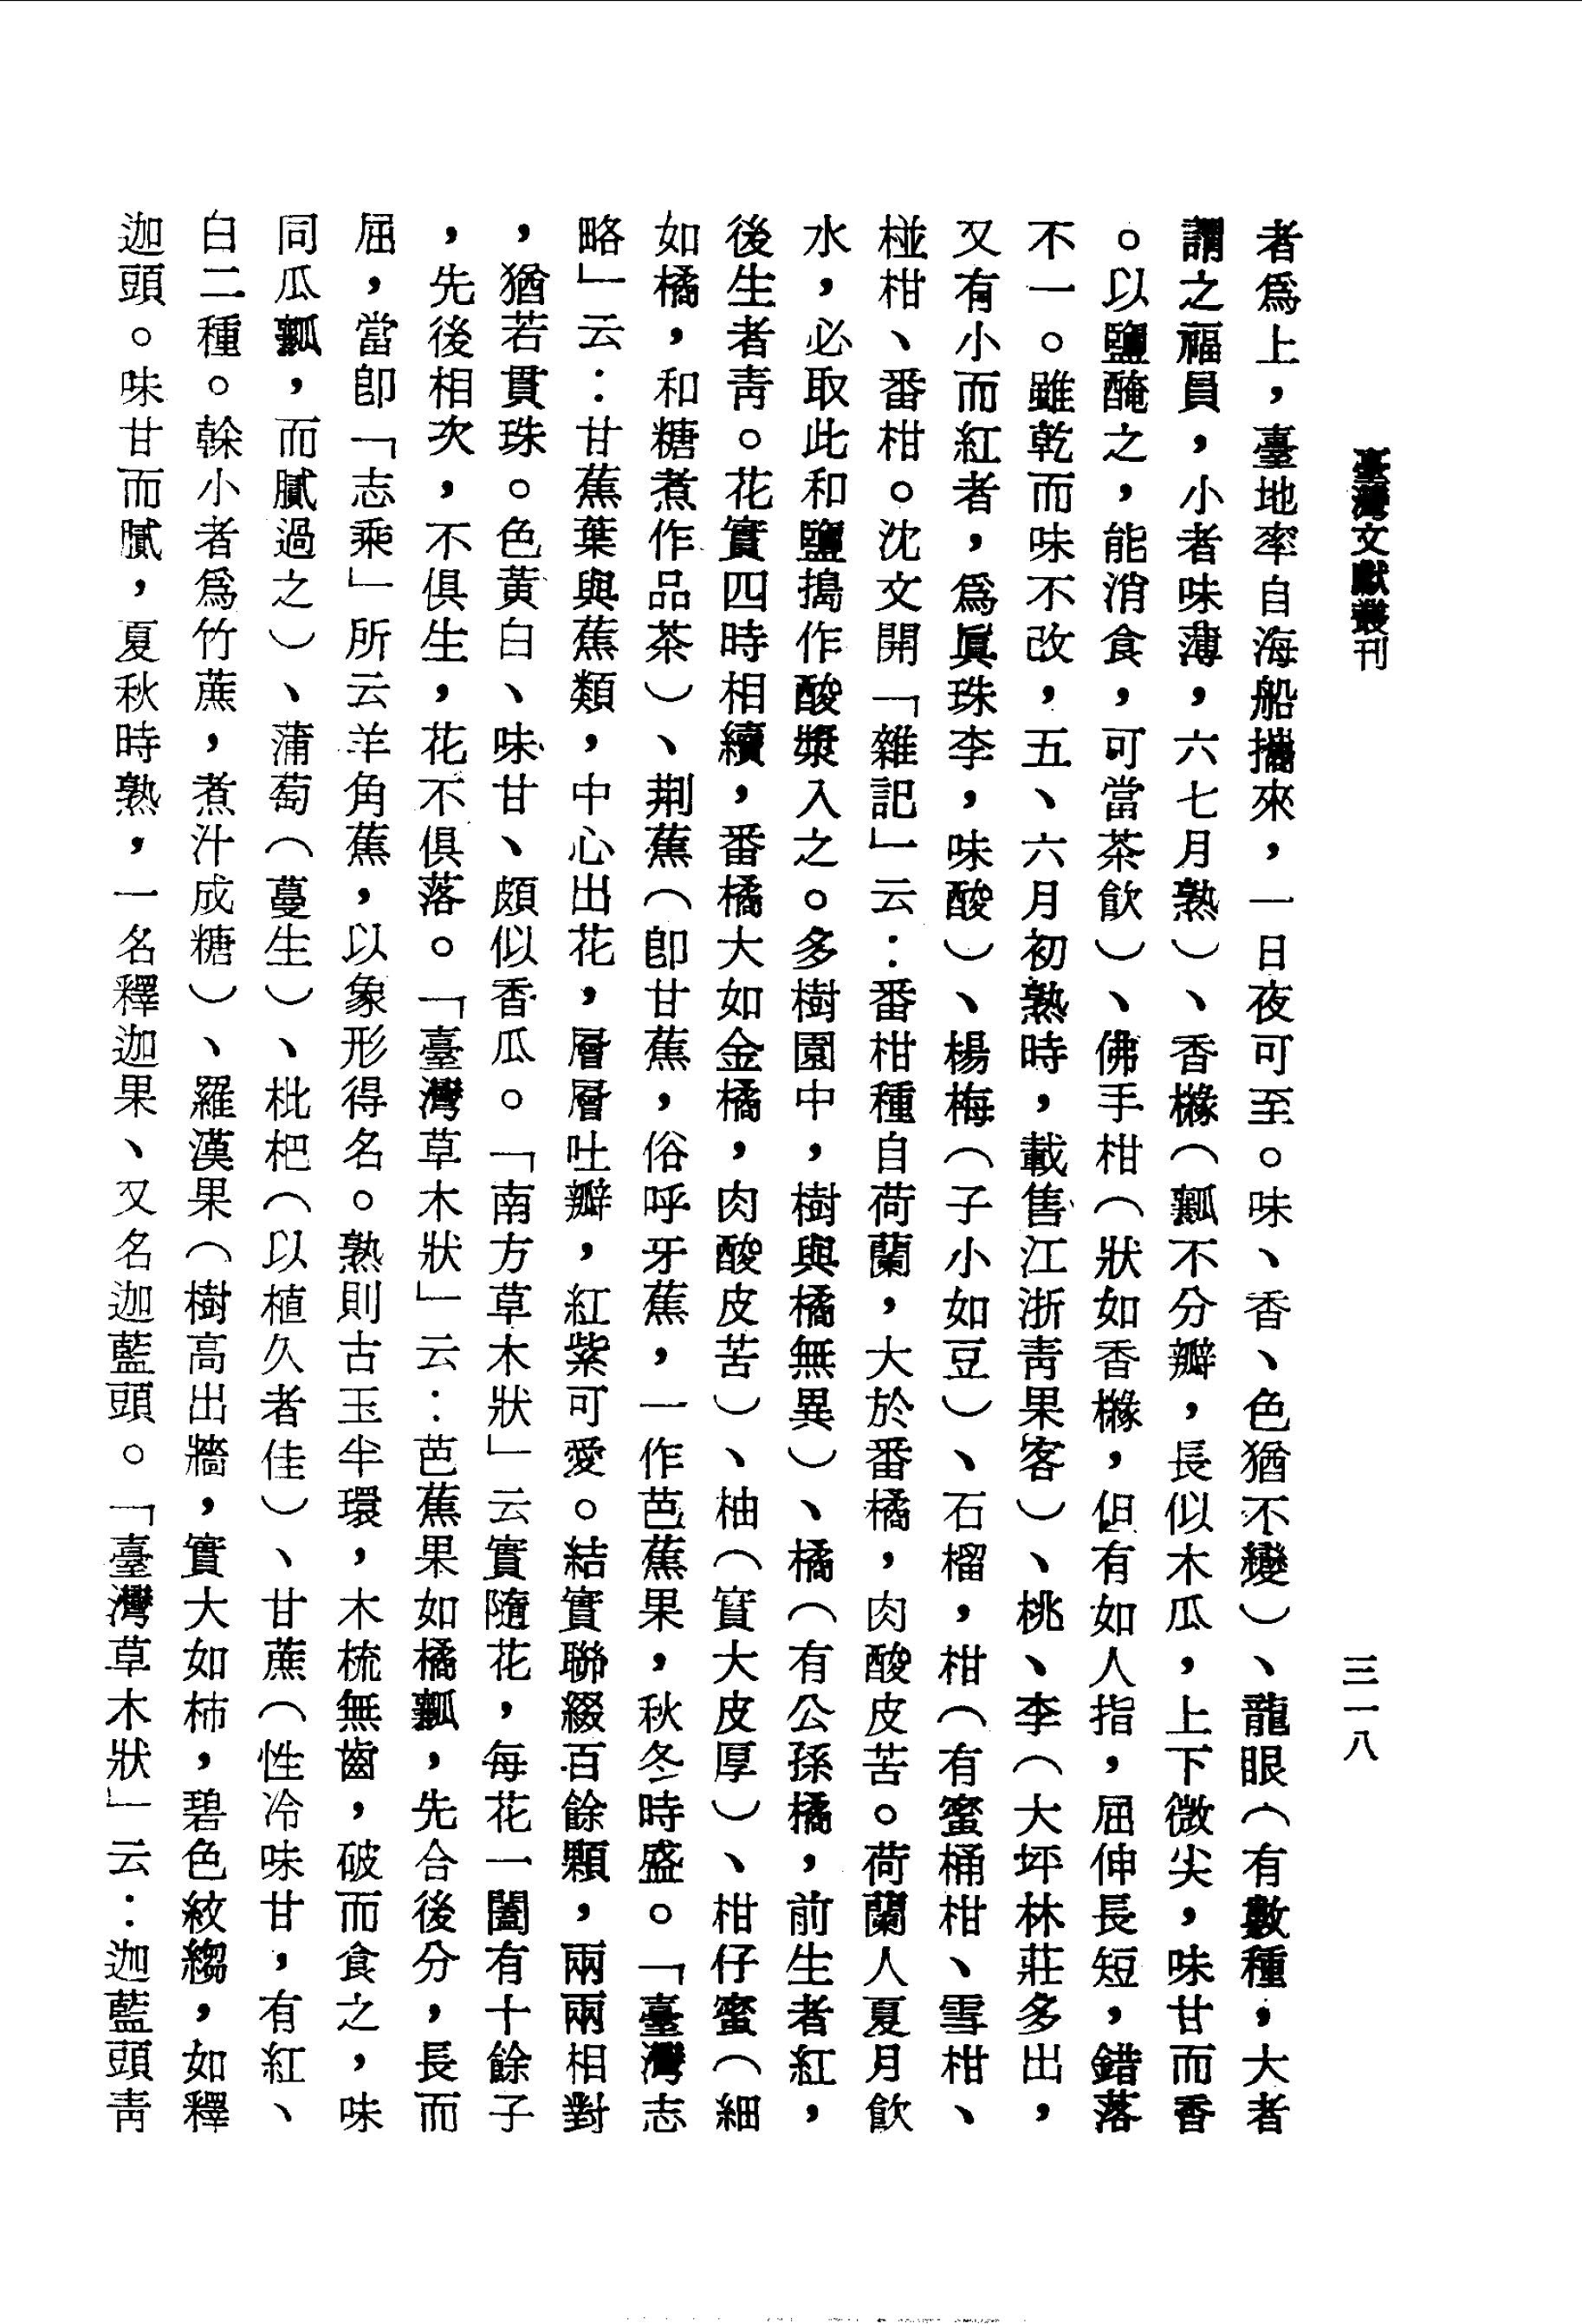 臺灣文獻叢刊
三一八
者爲上，臺地率自海船攜來，一日夜可至。味、香、色猶不變）、龍眼（有數種，大者
謂之福員，小者味薄，六七月熟）、香櫞（瓤不分瓣，長似木瓜，上下微尖，味甘而香
。以鹽醃之，能消食，可當茶飮）、佛手柑（狀如香櫞，但有如人指，屈伸長短，錯落
不一。雖乾而味不改，五、六月初熟時，載售江浙靑果客）、桃、李（大坪林莊多出，
又有小而紅者，爲眞珠李，味酸）、楊梅（子小如豆）、石榴，柑（有蜜桶柑、雪柑、
椪柑、番柑。沈文開「雜記」云：番柑種自荷蘭，大於番橘，肉酸皮苦。荷蘭人夏月飮
水，必取此和鹽搗作酸漿入之。多樹園中，樹與橘無異）、橘（有公孫橘，前生者紅，
後生者靑。花實四時相續，番橘大如金橘，肉酸皮苦）、柚（實大皮厚）、柑仔蜜（細
如橘，和糖煮作品茶）、荆蕉（卽甘蕉，俗呼牙蕉，一作芭蕉果，秋冬時盛。「臺灣志
略」云：甘蕉葉與蕉類，中心出花，層層吐瓣，紅紫可愛。結實聯綴百餘顆，兩兩相對
，猶若貫珠。色黃白、味甘、頗似香瓜。「南方草木狀」云實隨花，每花一闔有十餘子
，先後相次，不俱生，花不俱落。「臺灣草木狀」云：芭蕉果如橘瓤，先合後分，長而
屈，當卽「志乘」所云羊角蕉，以象形得名。熟則古玉半環，木梳無齒，破而食之，味
同瓜瓤，而膩過之）、蒲萄（蔓生）、枇杷（以植久者佳）、甘蔗（性冷味甘，有紅、
白二種。榦小者爲竹蔗，煮汁成糖）、羅漢果（樹高出牆，實大如柿，碧色紋縐，如釋
迦頭。味甘而膩，夏秋時熟，一名釋迦果、又名迦藍頭。「臺灣草木狀」云：迦藍頭靑